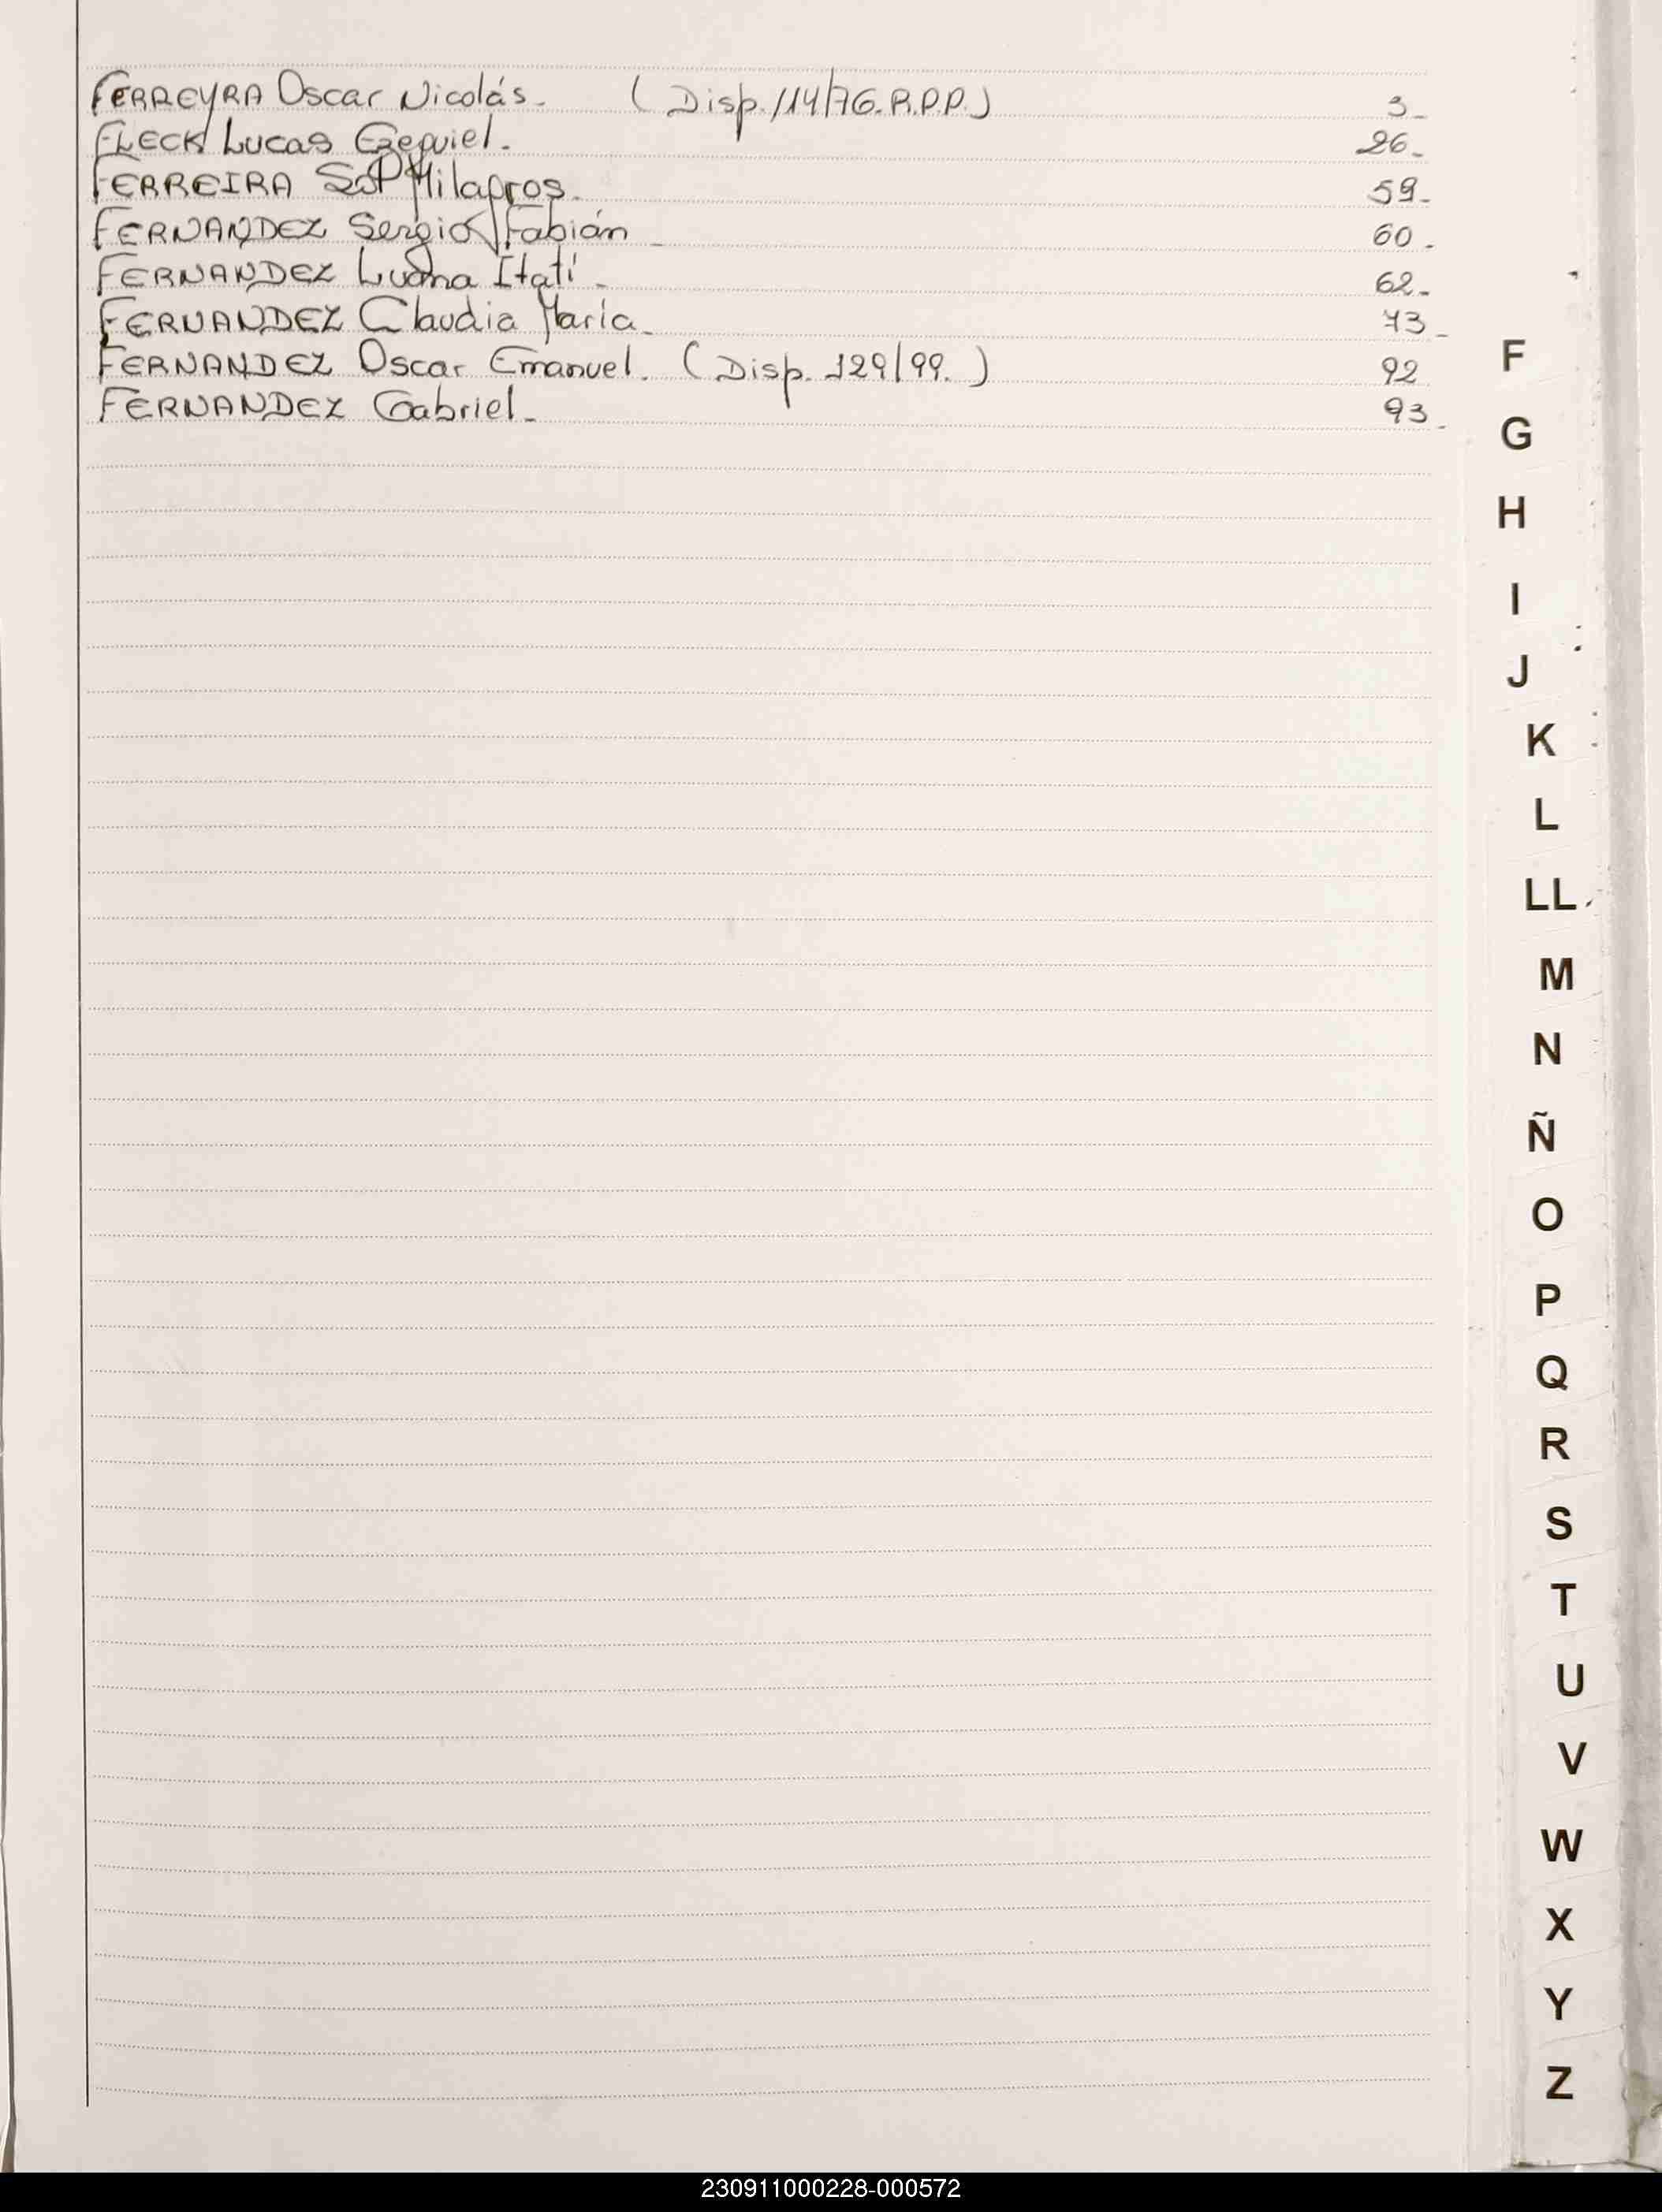 FERREYRA Oscar Nicolás. (Disp. 114/76. R.P.P.) 3_
FLECK Lucas Ezequiel. 26_
FERREIRA Sol Milagros. 59_
FERNANDEZ Sergio Fabián _ 60_
FERNANDEZ Luana Itatí _ 62_
FERNANDEZ Claudia María _ 73_
FERNANDEZ Oscar Emanuel. (Disp. 129/99.) 92
FERNANDEZ Gabriel _ 93_
F
G
H
I
J
K
L
LL
M
N
Ñ
O
P
Q
R
S
T
U
V
W
X
Y
Z
230911000228-000572